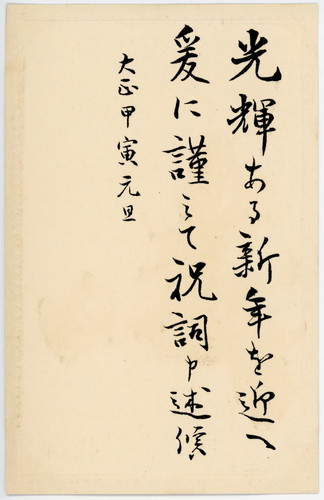 光輝ある新年を迎へ
爰に謹みて祝詞申述候
大正甲寅元旦